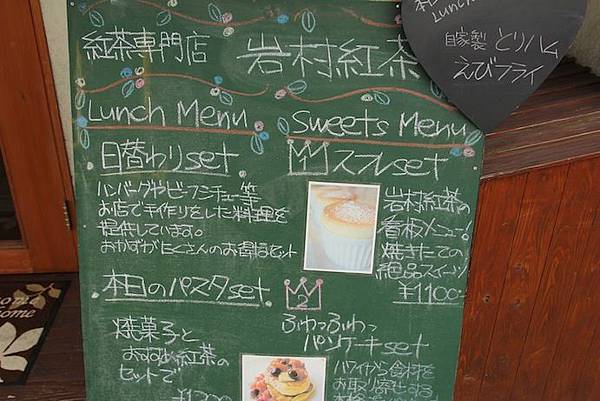 紅茶専門店 岩村紅茶
Lunch
自家製 とりハム
えびフライ
Lunch Menu
日替わりset
ハンバーグやビーフシチュー等
お店で手作りをした料理を
提供しています。
おかずがたくさんのお得なセット
本日のパスタset
焼菓子と
おすすめ紅茶の
セットで
¥1200
Sweets Menu
スフレset
岩村紅茶の
看板メニュー!
焼きたての
絶品スイーツ!
¥1100
2
ふわっふわっ
パンケーキset
ハワイから食材を
お取り寄せする
ome